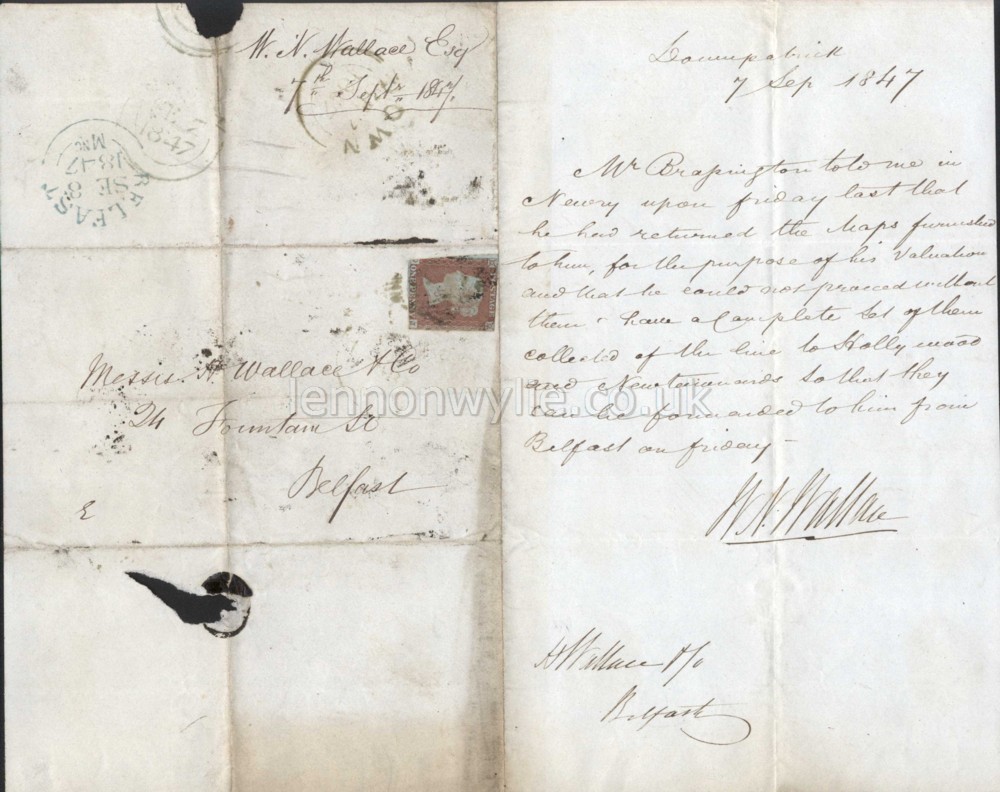 W. N. Wallace Esq
7th Septr 1847.
BELFAST
SE 8
1847
Messrs. H Wallace & Co
24 Fountain St
Belfast
E
Downpatrick
7 Sep 1847
Mr Brassington told me in
Newry upon friday last that
he had returned the Maps furnished
to him, for the purpose of his Valuation
and that he could not proceed without
them - have a Complete Set of them
collected of the line to Hollywood
and Newtownards so that they
can be forwarded to him from
Belfast on friday -
W. N. Wallace
H Wallace & Co
Belfast
lennonwylie.co.uk